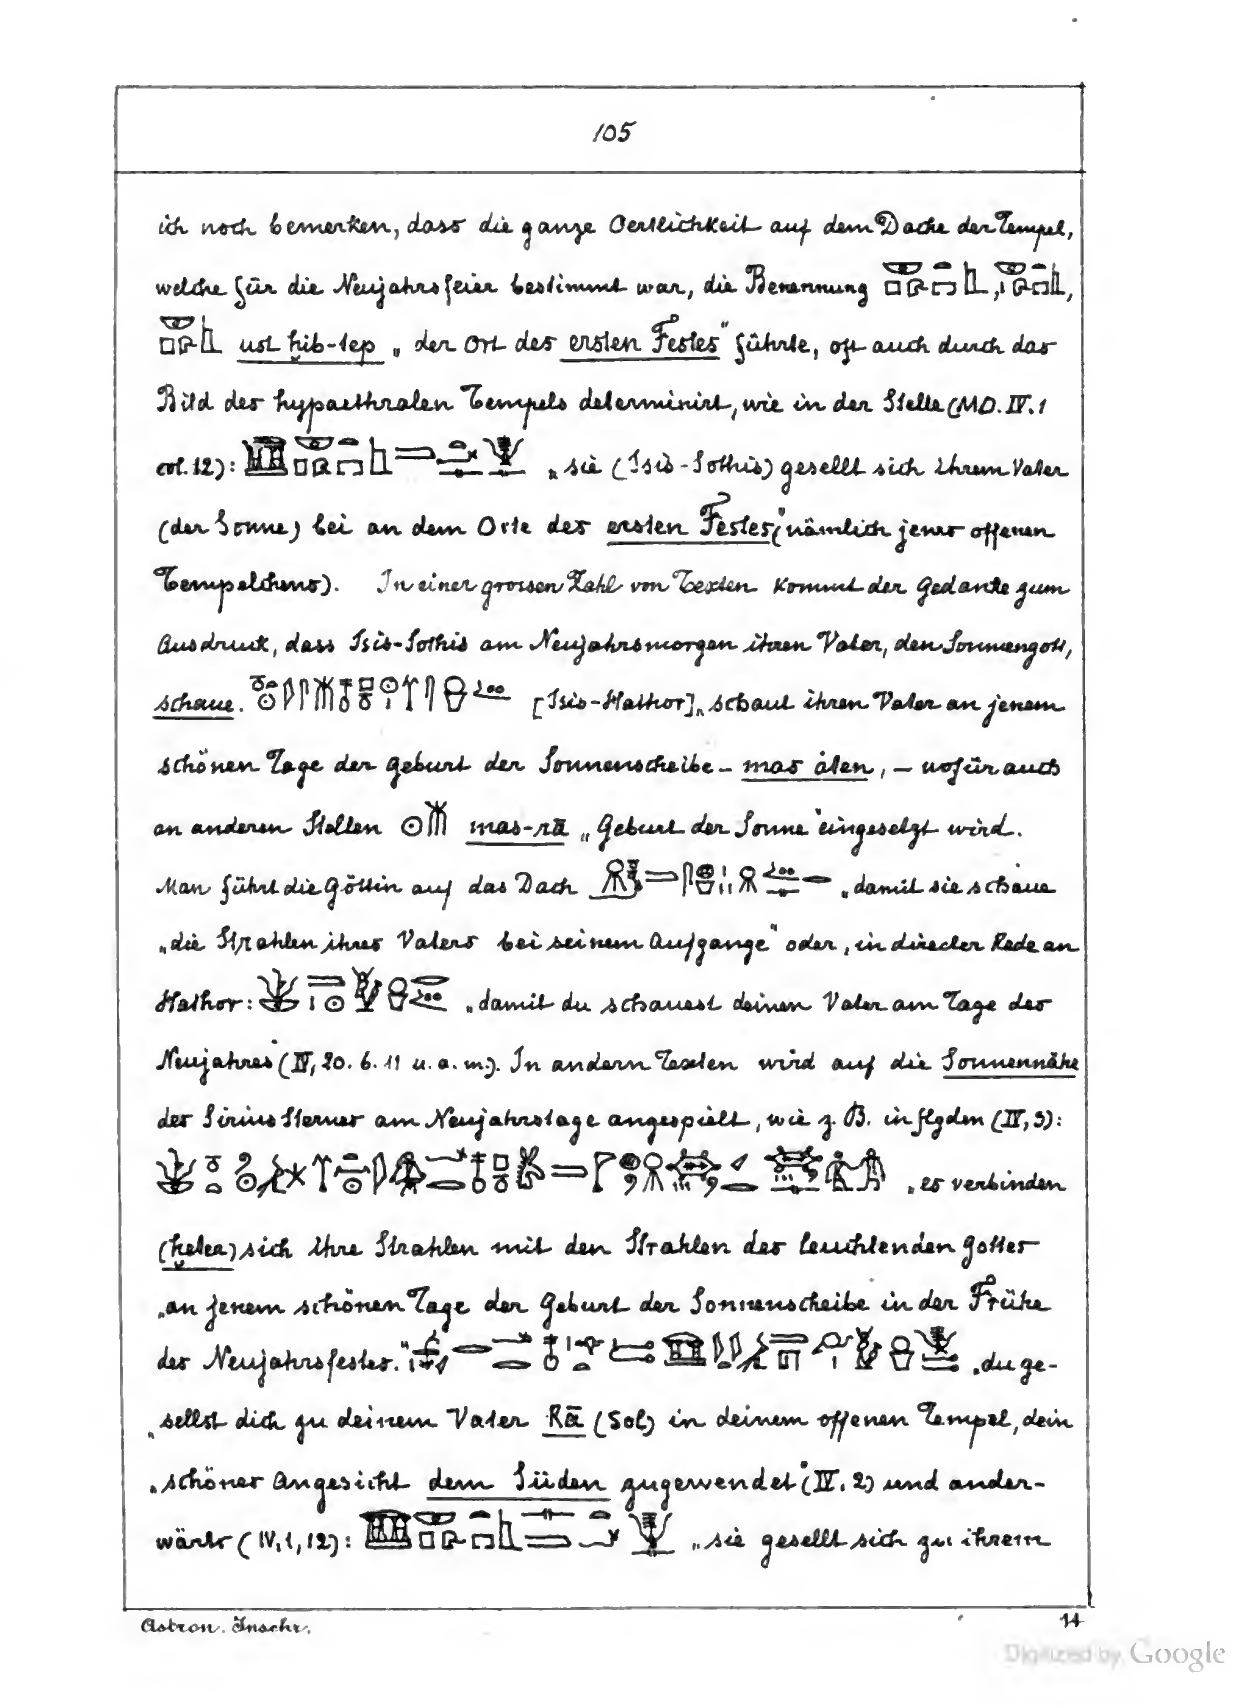 105
ich noch bemerken, dass die ganze Oertlichkeit auf dem Dache der Tempel,
welche für die Neujahrsfeier bestimmt war, die Benennung
ust ḥib-tep „der Ort des ersten Festes“ führte, oft auch durch das
Bild des hypaethralen Tempels determinirt, wie in der Stelle (MD. IV. 1
col. 12): „sie (Isis-Sothis) gesellt sich ihrem Vater
(der Sonne) bei an dem Orte des ersten Festes“ (nämlich jenes offenen
Tempelchens). In einer grossen Zahl von Texten kommt der Gedanke zum
Ausdruck, dass Isis-Sothis am Neujahrsmorgen ihren Vater, den Sonnengott,
schaue. [Isis-Hathor] „schaut ihren Vater an jenem
schönen Tage der Geburt der Sonnenscheibe – mas åten, – wofür auch
an anderen Stellen mas-rā „Geburt der Sonne“ eingesetzt wird.
Man führt die Göttin auf das Dach „damit sie schaue
„die Strahlen ihres Vaters bei seinem Aufgange“ oder, in directer Rede an
Hathor: „damit du schauest deinen Vater am Tage des
Neujahres“ (IV, 20. 6. 11 u. a. m.). In andern Texten wird auf die Sonnennähe
des Sirius Sternes am Neujahrstage angespielt, wie z. B. in flgden (IV, 3):
„es verbinden
(ḫeter) sich ihre Strahlen mit den Strahlen des leuchtenden Gottes
„an jenem schönen Tage der Geburt der Sonnenscheibe in der Frühe
des Neujahrsfestes.“ „du ge-
„sellst dich zu deinem Vater Rā (Sol) in deinem offenen Tempel, dein
„schönes Angesicht dem Süden zugewendet“ (IV. 2) und ander-
wärts (IV, 1, 12): „sie gesellt sich zu ihrem
Astron. Inschr. 14
Digitized by Google